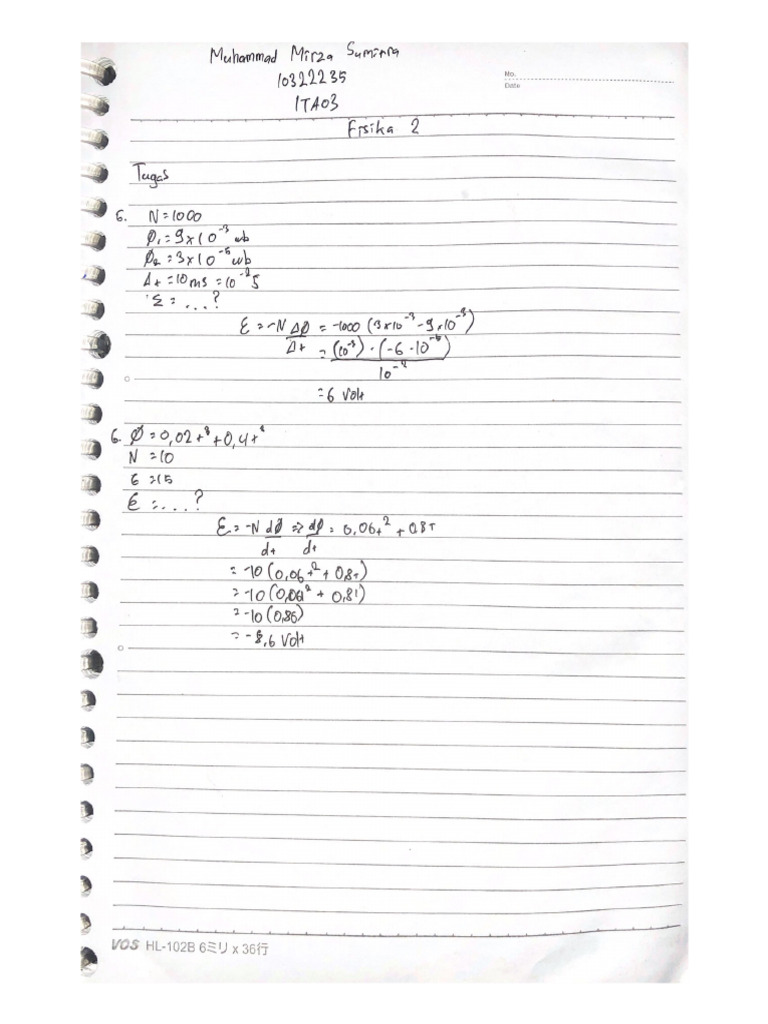 Muhammad Mirza Sumitra
10322235
ITA03
No.
Date
Fisika 2
Tugas
5. N = 1000
Ø₁ = 9 x 10⁻³ wb
Ø₂ = 3 x 10⁻⁵ wb
Δt = 10 ms = 10⁻² s
ε = ...?
ε = -N ΔØ/Δt = -1000 (3x10⁻³ - 9x10⁻³)
= (10⁻³) · (-6 · 10⁻⁵)
10⁻²
= 6 Volt
6. Ø = 0,02t³ + 0,4t²
N = 10
t = 15
ε = ...?
ε = -N dØ/dt => dØ/dt = 0,06t² + 0,8t
= -10 (0,06t² + 0,8t)
= -10 (0,06² + 0,81)
= -10 (0,86)
= -8,6 Volt
VOS HL-102B 6ミリ x 36行